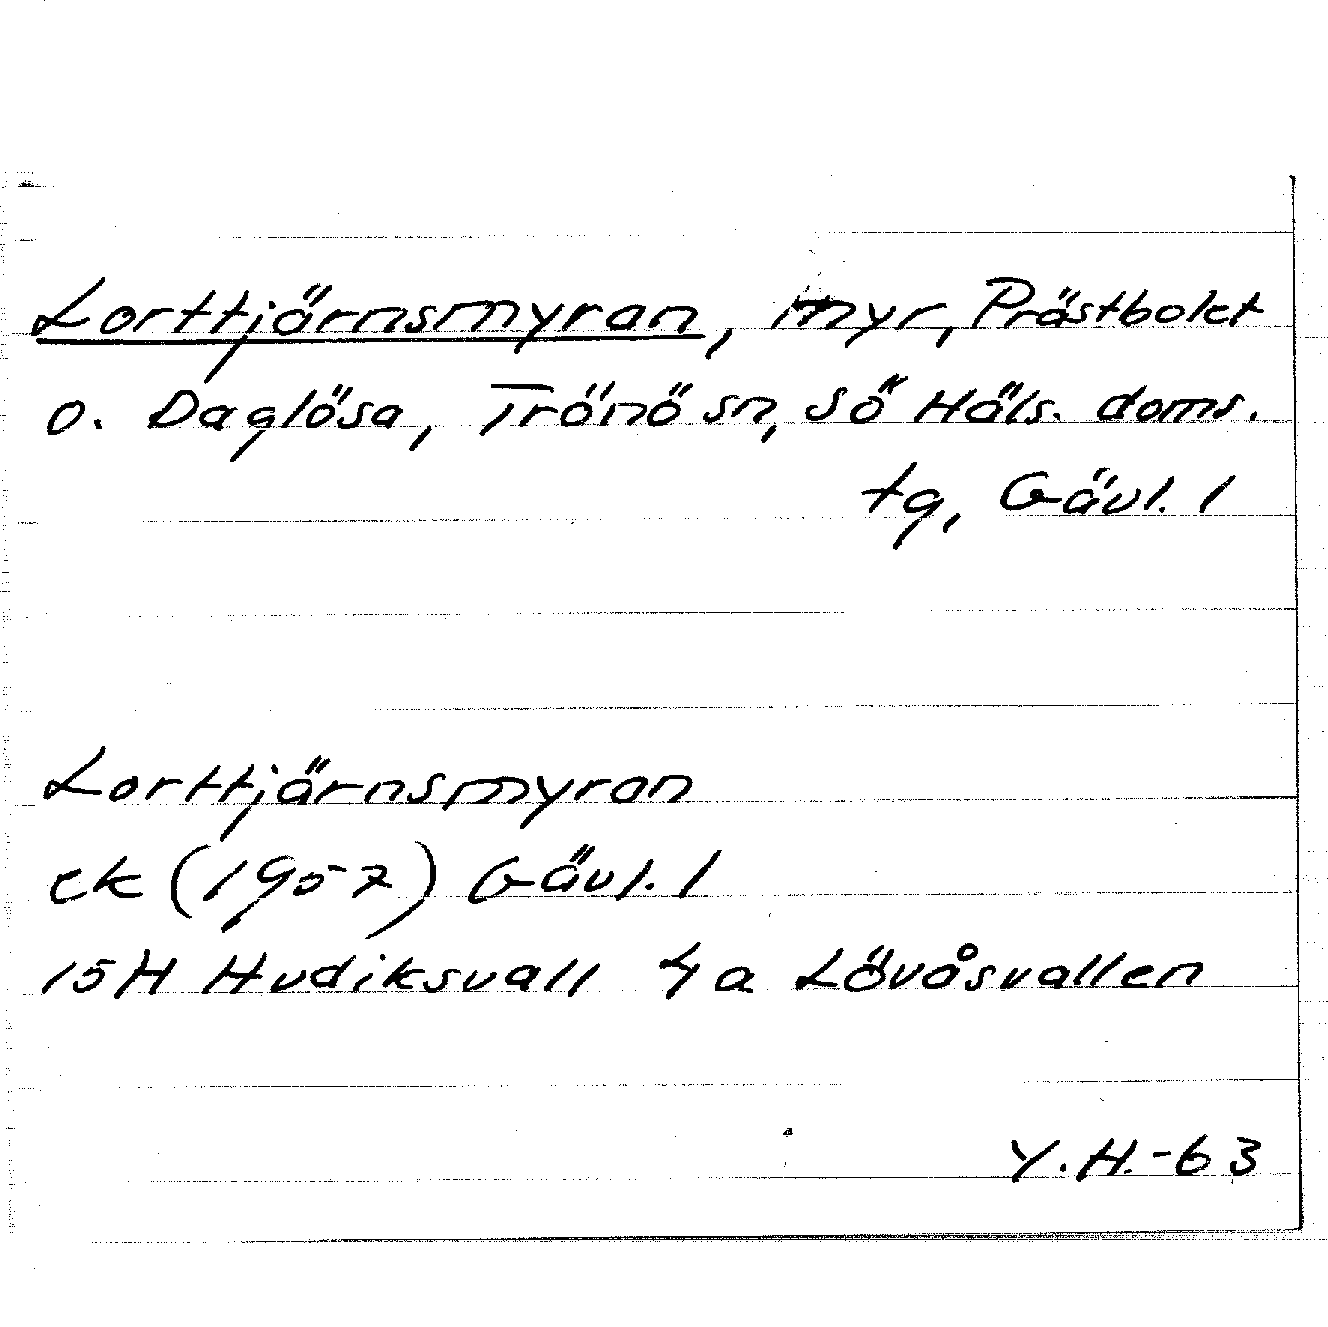 Lorttjärnsmyran, myr, Prästbolet
o. Daglösa, Trönö sn, Sö Häls. doms.
tg, Gävl. l
Lorttjärnsmyran
ek (1957) Gävl. l
15H Hudiksvall 4a Lövåsvallen
Y.H.-63